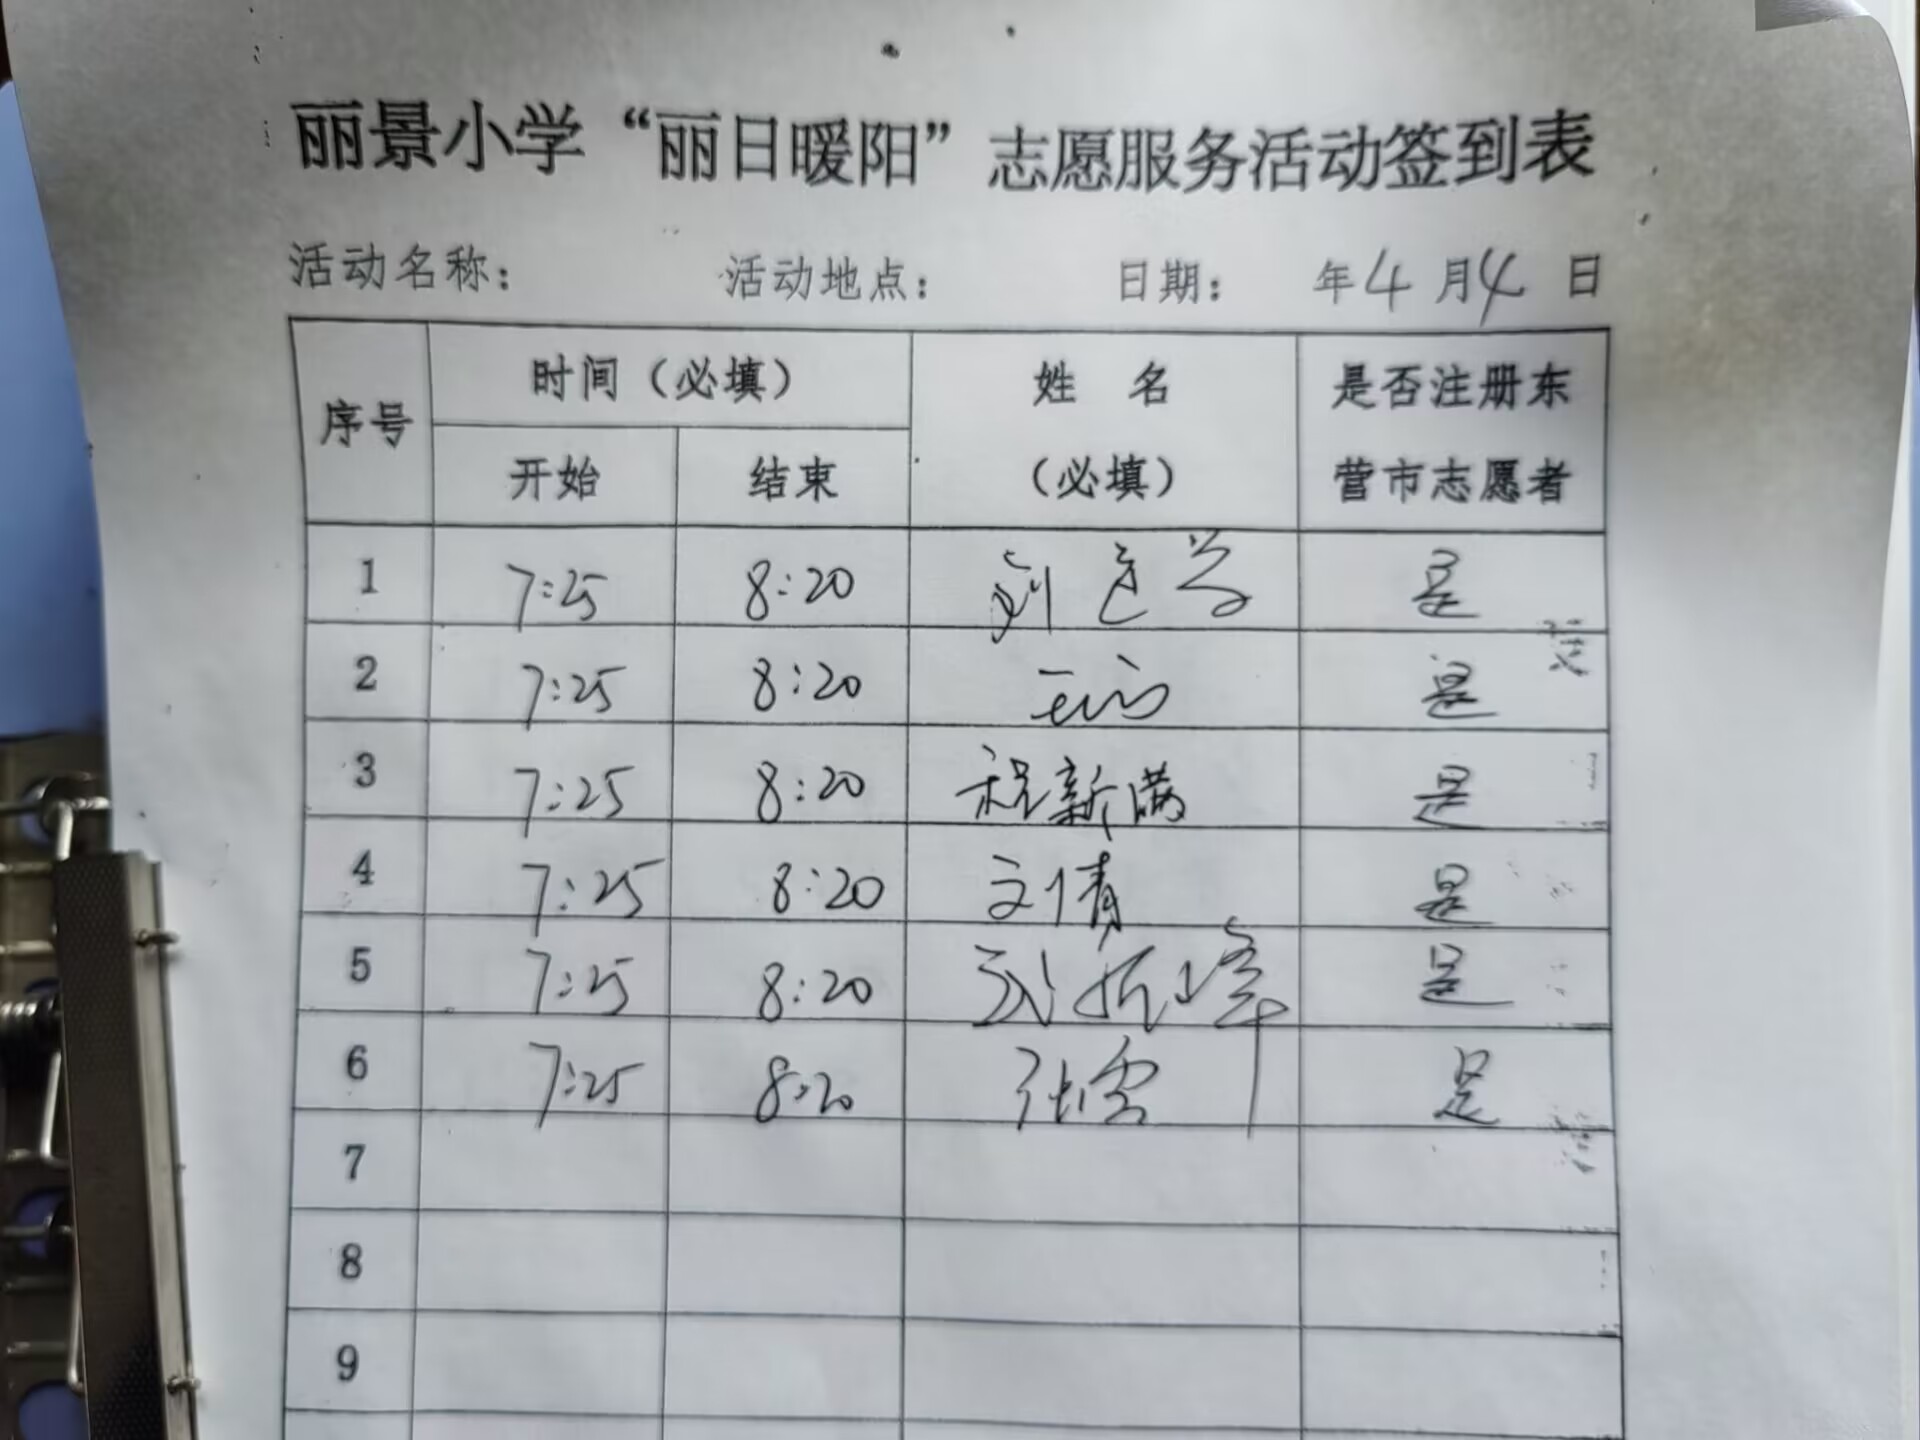 丽景小学“丽日暖阳”志愿服务活动签到表
活动名称： 活动地点： 日期： 年4月4日
序号 时间（必填） 姓 名 是否注册东
开始 结束 （必填） 营市志愿者
1 7:25 8:20 是
2 7:25 8:20 是
3 7:25 8:20 程新满 是
4 7:25 8:20 文倩 是
5 7:25 8:20 是
6 7:25 8:20 张雪 是
7
8
9